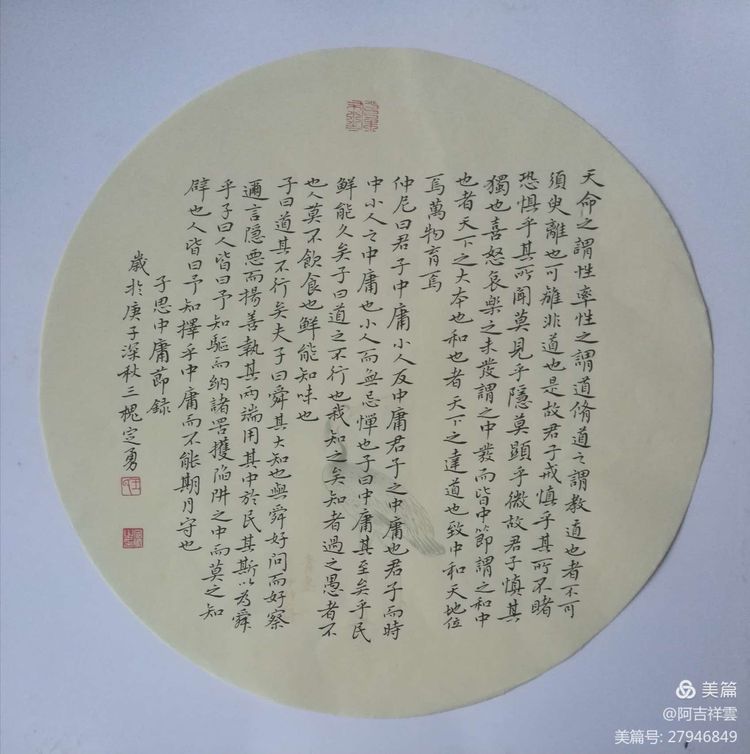 天命之謂性率性之謂道脩道之謂教道也者不可
須臾離也可離非道也是故君子戒慎乎其所不睹
恐懼乎其所聞莫見乎隱莫顯乎微故君子慎其
獨也喜怒哀樂之未發謂之中發而皆中節謂之和中
也者天下之大本也和也者天下之達道也致中和天地位
焉萬物育焉
仲尼曰君子中庸小人反中庸君子之中庸也君子而時
中小人之中庸也小人而無忌憚也子曰中庸其至矣乎民
鮮能久矣子曰道之不行也我知之矣知者過之愚者不
也人莫不飲食也鮮能知味也
子曰道其不行矣夫子曰舜其大知也與舜好問而好察
邇言隱惡而揚善執其兩端用其中於民其斯以為舜
乎子曰人皆曰予知驅而納諸罟擭陷阱之中而莫之知
辟也人皆曰予知擇乎中庸而不能期月守也
子思中庸節錄
歲於庚子深秋三槐定勇
美篇
@阿吉祥雲
美篇号: 27946849